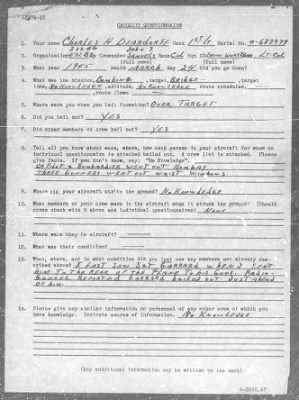 CASUALTY QUESTIONNAIRE
1. Your name Charles H Deardorff Rank 1st Lt Serial No.
2. Organization Gp Commander Samuels Rank Col Sqn CO Lt-Col
(full name) (full name)
3. What year 1945 month March day 24 did you go down?
4. What was the mission, Bombing, target, Bridge, target
time, No Knowledge, altitude, No Knowledge route scheduled,
, route flown
5. Where were you when you left formation? Over Target
6. Did you bail out? Yes
7. Did other members of crew bail out? Yes
8. Tell all you know about when, where, how each person in your aircraft for whom no
individual questionnaire is attached bailed out. A crew list is attached. Please
give facts. If you don't know, say: "No Knowledge".
Co Pilot & Bombardier went out Bombay
Three Gunners went out waist windows
9. Where did your aircraft strike the ground? No Knowledge
10. What members of your crew were in the aircraft when it struck the ground? (Should
cross check with 8 above and individual questionnaires) None
11. Where were they in aircraft?
12. What was their condition?
13. When, where, and in what condition did you last see any members not already
described above? I last saw Sgt Garrard when I sent
him to the rear of the plane to his guns. Radio-
Gunner reported Garrard bailed out just ahead
of him.
14. Please give any similar information on personnel of any other crew of which you
have knowledge. Indicate source of information. No Knowledge
(Any additional information may be written on the back)